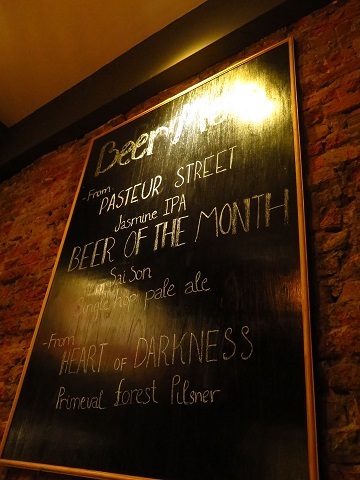 Beer Menu
- From PASTEUR STREET
Jasmine IPA
BEER OF THE MONTH
Saison
Single hop pale ale
- From
HEART OF DARKNESS
Primeval forest Pilsner